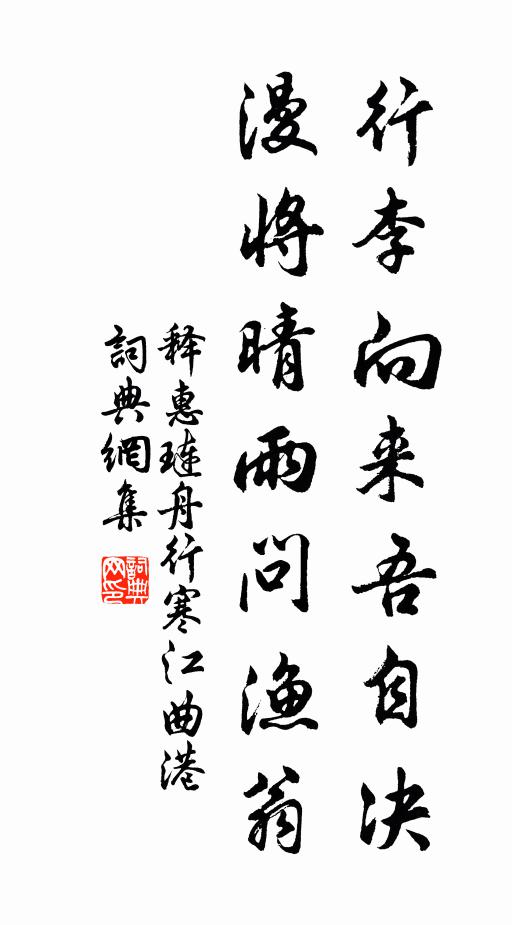 行李向来吾自决
漫將晴雨问渔翁
释惠琏舟行寒江曲港
詞典網集
詞典网印